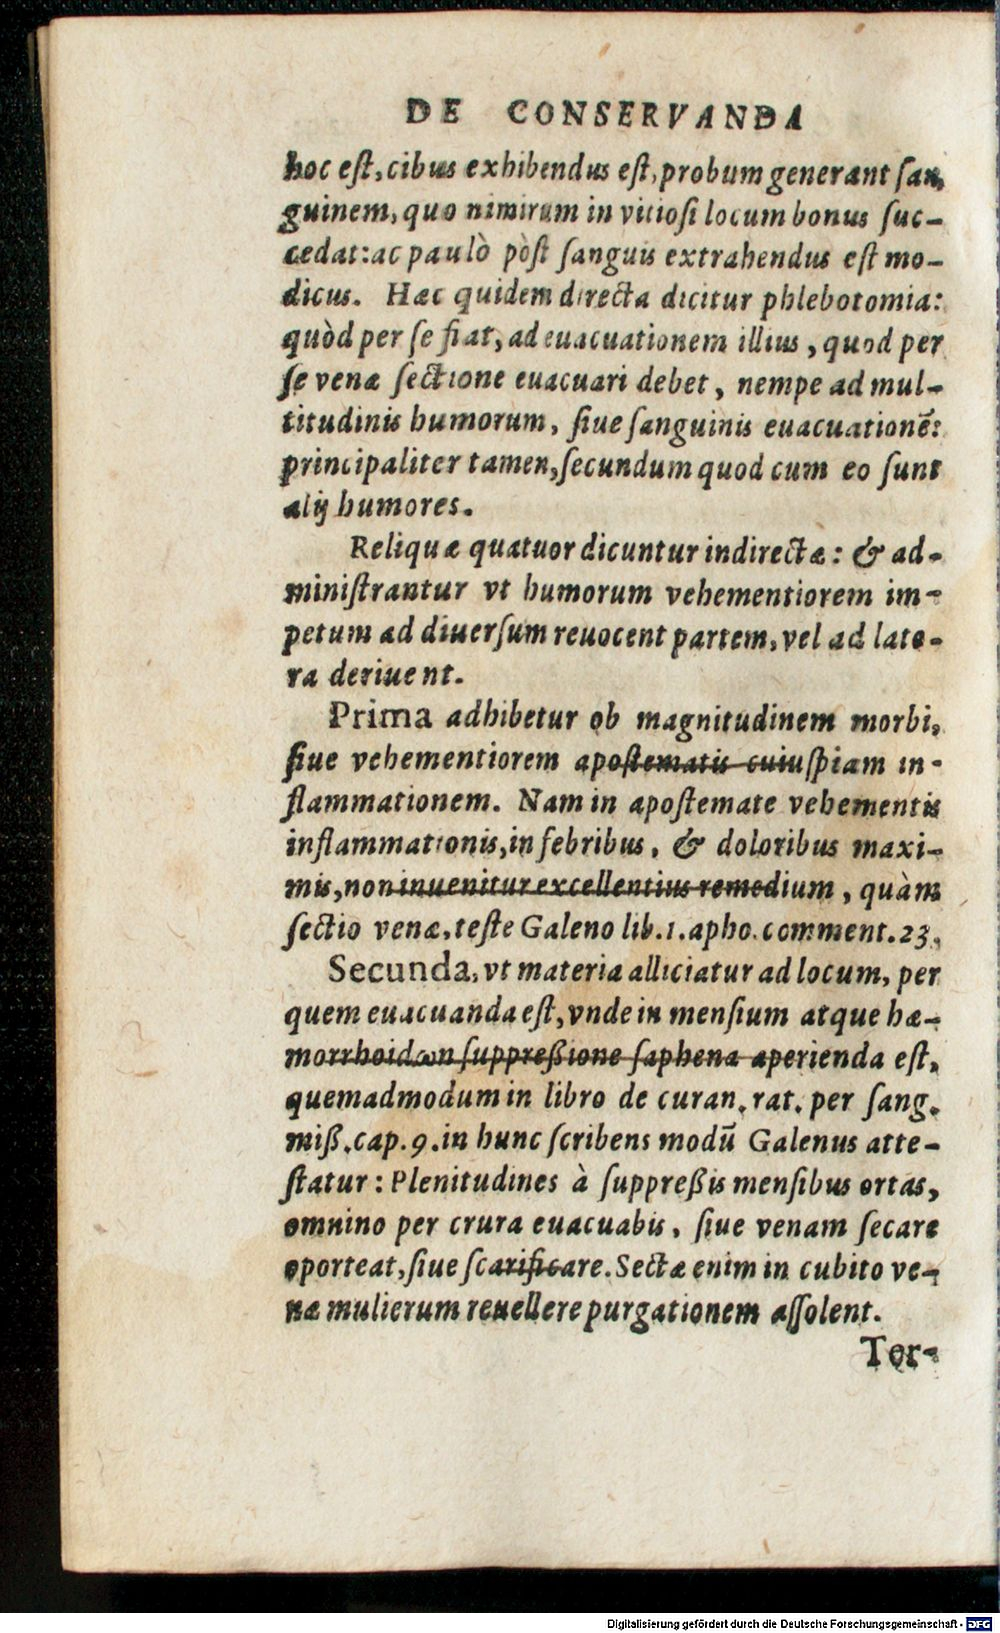 DE CONSERVANDA
hoc eſt, cibus exhibendus eſt, probum generant ſan,
guinem, quo nimirum in vitioſi locum bonus ſuc-
cedat: ac paulò pòſt ſanguis extrahendus eſt mo-
dicus. Hæc quidem directa dicitur phlebotomia:
quòd per ſe fiat, ad euacuationem illius, quod per
ſe venæ ſectione euacuari debet, nempe ad mul-
titudinis humorum, ſiue ſanguinis euacuationē:
principaliter tamen, ſecundum quod cum eo ſunt
alij humores.
Reliquæ quatuor dicuntur indirectæ: & ad-
miniſtrantur vt humorum vehementiorem im-
petum ad diuerſum reuocent partem, vel ad late-
ra deriuent.
Prima adhibetur ob magnitudinem morbi,
ſiue vehementiorem apoſtematis cuiuſpiam in-
flammationem. Nam in apoſtemate vehementis
inflammationis, in febribus, & doloribus maxi-
mis, non inuenitur excellentius remedium, quàm
ſectio venæ, teſte Galeno lib. 1. apho. comment. 23.
Secunda, vt materia alliciatur ad locum, per
quem euacuanda eſt, vnde in menſium atque hæ-
morrhoidωn ſuppreßione ſaphena aperienda eſt,
quemadmodum in libro de curan. rat. per ſang.
miß. cap. 9. in hunc ſcribens modū Galenus atte-
ſtatur: Plenitudines à ſuppreßis menſibus ortas,
omnino per crura euacuabis, ſiue venam ſecare
oporteat, ſiue ſcarificare. Sectæ enim in cubito ve-
næ mulierum reuellere purgationem aſſolent.
Ter-
Digitalisierung gefördert durch die Deutsche Forschungsgemeinschaft - DFG